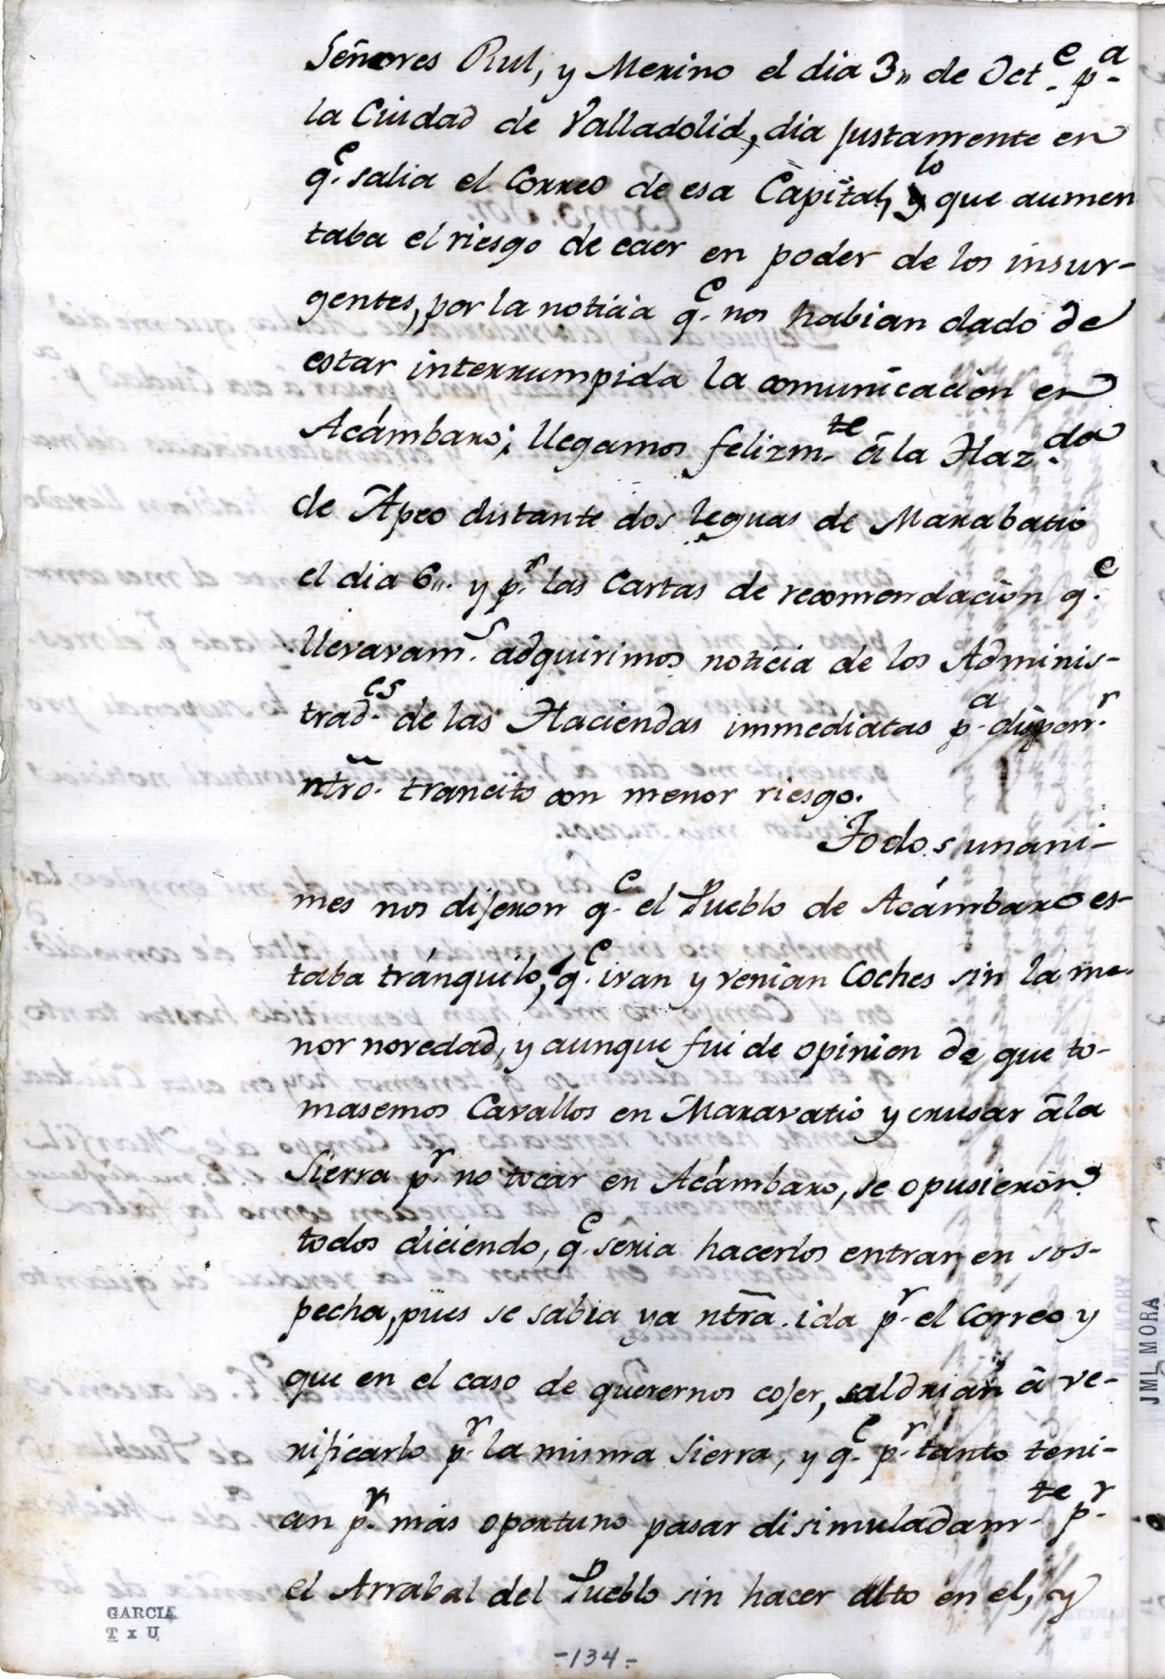 Señores Rul, y Merino el dia 3,, de Oct.e p.a
la Ciudad de Valladolid, dia justamente en
q.e salia el Correo de esa Capital, lo que aumen
taba el riesgo de caer en poder de los insur-
gentes, por la noticia q.e nos habian dado de
estar interrumpida la comunicacion en
Acámbaro; llegamos felizm.te á la Haz.da
de Apeo distante dos leguas de Marabatio
el dia 6,, y p.r las Cartas de recomendacion q.e
llevavam.s adquirimos noticia de los Adminis-
trad.es de las Haciendas immediatas p.a dispon.r
ntrō. trancito con menor riesgo.
Todos unani-
mes nos dijeron q.e el Pueblo de Acámbaro es-
taba tránquilo, q.e ivan y venian Coches sin la me-
nor novedad, y aunque fui de opinion de que to-
masemos Cavallos en Maravatio y crusar á la
Sierra p.r no tocar en Acámbaro, se opusieron
todos diciendo, q.e seria hacerlos entrar en sos-
pecha, pues se sabia ya ntrā. ida p.r el Correo y
que en el caso de querernos cojer, saldrian á ve-
rificarlo p.r la misma Sierra, y q.e p.r tanto teni-
an p.r mas oportuno pasar disimuladam.te p.r
el Arrabal del Pueblo sin hacer alto en el, y
GARCIA
T x U
-134-
JML MORA